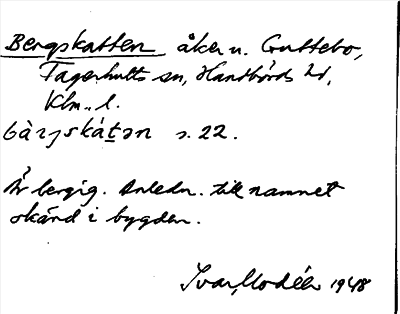 Bergskatten åker u. Guttebo,
Fagerhults sn, Handbörds hd,
Klm. l.
bàrjskátən s. 22.
Är bergig. Anledn. till namnet
okänd i bygden.
Ivar Modéer 1948